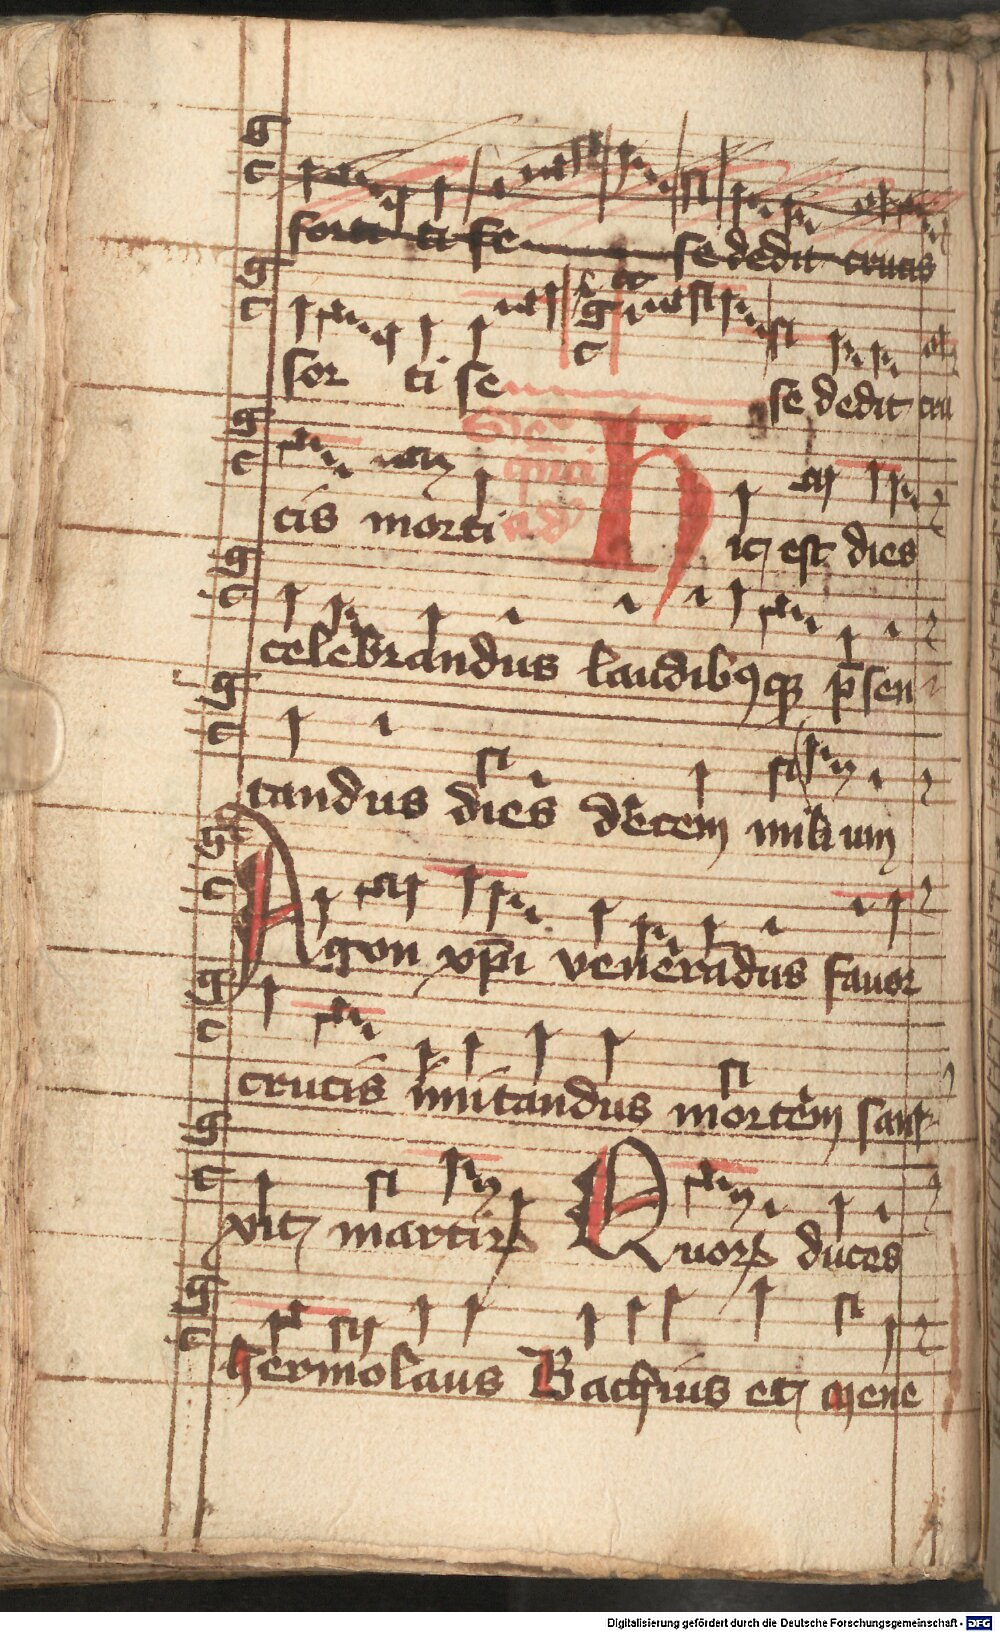 sorti ti se se dedit crucis
sor ti se se dedit cru
cis morti Hic est dies
celebrandus laudibꝰqꝫ p̄sen
tandus dies decem milium
Agon xp̄i venerādus fauor
crucis īmitandus mortem sanc
xit martirꝝ Quorꝝ duces
hermolaus Bachius et mene
Digitalisierung gefördert durch die Deutsche Forschungsgemeinschaft - DFG